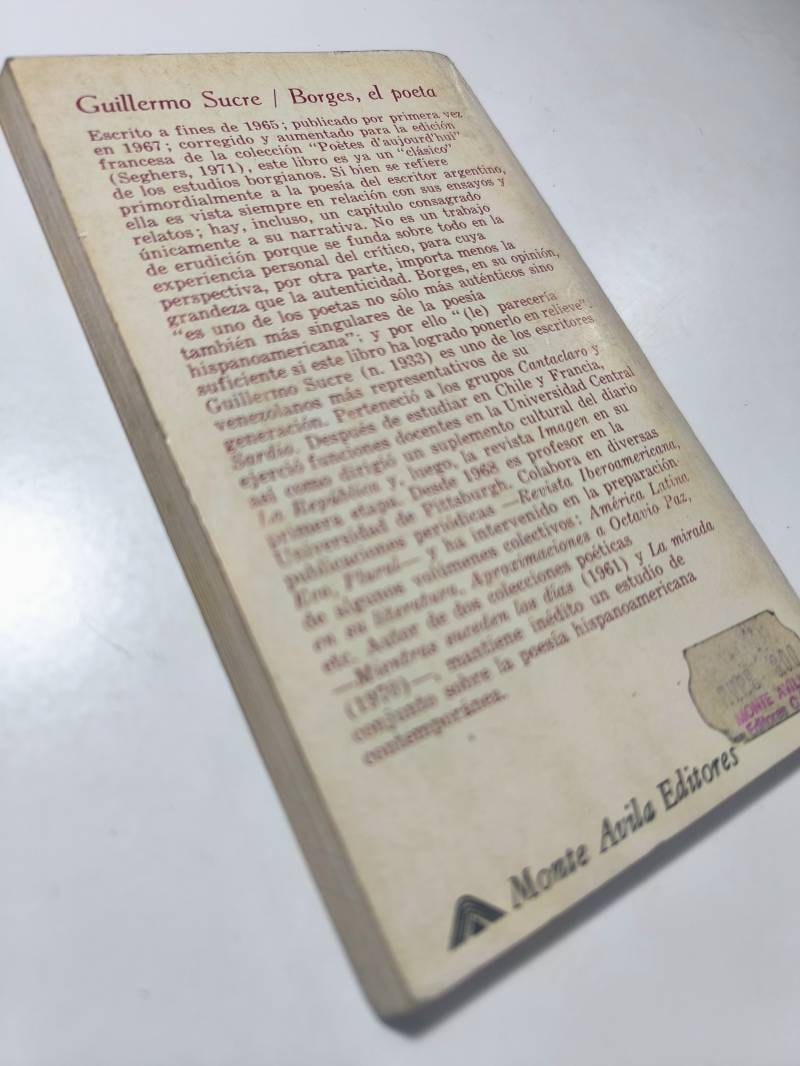 Guillermo Sucre / Borges, el poeta
Escrito a fines de 1965; publicado por primera vez
en 1967; corregido y aumentado para la edición
francesa de la colección "Poëtes d'aujourd'hui"
(Seghers, 1971), este libro es ya un "clásico"
de los estudios borgianos. Si bien se refiere
primordialmente a la poesía del escritor argentino,
ella es vista siempre en relación con sus ensayos y
relatos; hay, incluso, un capítulo consagrado
únicamente a su narrativa. No es un trabajo
de erudición porque se funda sobre todo en la
experiencia personal del crítico, para cuya
perspectiva, por otra parte, importa menos la
grandeza que la autenticidad. Borges, en su opinión,
"es uno de los poetas no sólo más auténticos sino
también más singulares de la poesía
hispanoamericana"; y por ello "(le) parecería
suficiente si este libro ha logrado ponerlo en relieve".
Guillermo Sucre (n. 1933) es uno de los escritores
venezolanos más representativos de su
generación. Perteneció a los grupos Cantaclaro y
Sardio. Después de estudiar en Chile y Francia,
ejerció funciones docentes en la Universidad Central
así como dirigió un suplemento cultural del diario
La República y, luego, la revista Imagen en su
primera etapa. Desde 1968 es profesor en la
Universidad de Pittsburgh. Colabora en diversas
publicaciones periódicas —Revista Iberoamericana,
Eco, Plural— y ha intervenido en la preparación
de algunos volúmenes colectivos: América Latina
en su literatura, Aproximaciones a Octavio Paz,
etc. Autor de dos colecciones poéticas
—Mientras suceden los días (1961) y La mirada
(1970)—, mantiene inédito un estudio de
conjunto sobre la poesía hispanoamericana
contemporánea.
MONTE AVILA
Editores C.
Monte Avila Editores